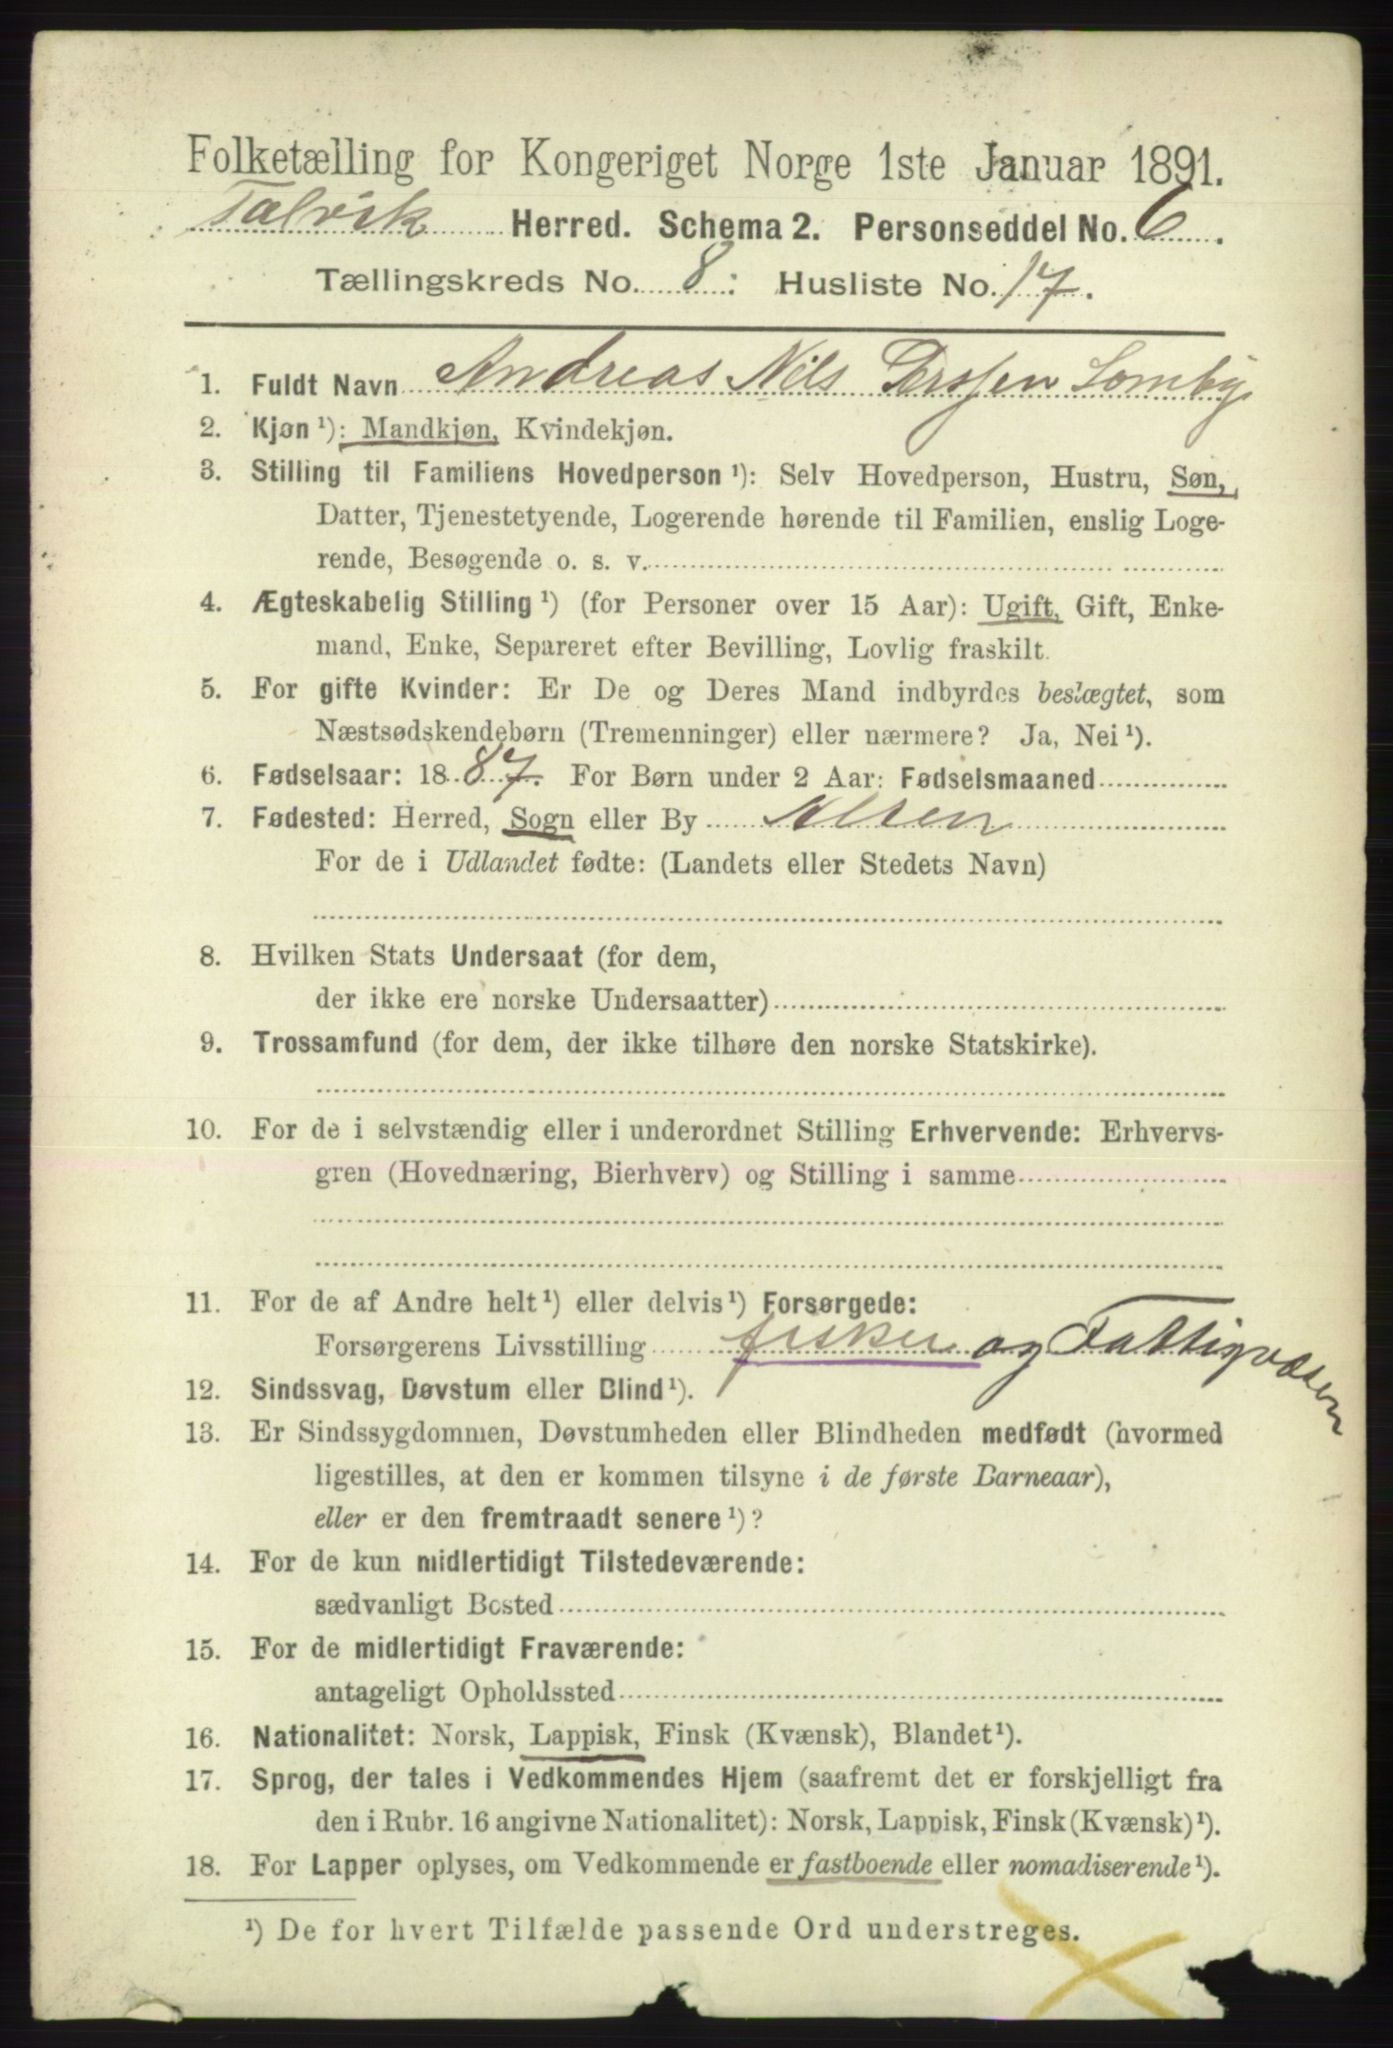 Folketælling for Kongeriget Norge 1ste Januar 1891.
Talvik Herred. Schema 2. Personseddel No. 6.
Tællingskreds No. 8: Husliste No. 17.
1. Fuldt Navn Andreas Nils Perssen Somby
2. Kjøn ¹): Mandkjøn, Kvindekjøn.
3. Stilling til Familiens Hovedperson ¹): Selv Hovedperson, Hustru, Søn,
Datter, Tjenestetyende, Logerende hørende til Familien, enslig Loge-
rende, Besøgende o. s. v.
4. Ægteskabelig Stilling ¹) (for Personer over 15 Aar): Ugift, Gift, Enke-
mand, Enke, Separeret efter Bevilling, Lovlig fraskilt.
5. For gifte Kvinder: Er De og Deres Mand indbyrdes beslægtet, som
Næstsødskendebørn (Tremenninger) eller nærmere? Ja, Nei ¹).
6. Fødselsaar: 1887. For Børn under 2 Aar: Fødselsmaaned
7. Fødested: Herred, Sogn eller By Alten
For de i Udlandet fødte: (Landets eller Stedets Navn)
8. Hvilken Stats Undersaat (for dem,
der ikke ere norske Undersaatter)
9. Trossamfund (for dem, der ikke tilhøre den norske Statskirke).
10. For de i selvstændig eller i underordnet Stilling Erhvervende: Erhvervs-
gren (Hovednæring, Bierhverv) og Stilling i samme
11. For de af Andre helt ¹) eller delvis ¹) Forsørgede:
Forsørgerens Livsstilling fisker og Fattigvæsen
12. Sindssvag, Døvstum eller Blind ¹).
13. Er Sindssygdommen, Døvstumheden eller Blindheden medfødt (hvormed
ligestilles, at den er kommen tilsyne i de første Barneaar),
eller er den fremtraadt senere ¹)?
14. For de kun midlertidigt Tilstedeværende:
sædvanligt Bosted
15. For de midlertidigt Fraværende:
antageligt Opholdssted
16. Nationalitet: Norsk, Lappisk, Finsk (Kvænsk), Blandet ¹).
17. Sprog, der tales i Vedkommendes Hjem (saafremt det er forskjelligt fra
den i Rubr. 16 angivne Nationalitet): Norsk, Lappisk, Finsk (Kvænsk) ¹).
18. For Lapper oplyses, om Vedkommende er fastboende eller nomadiserende ¹).
¹) De for hvert Tilfælde passende Ord understreges.